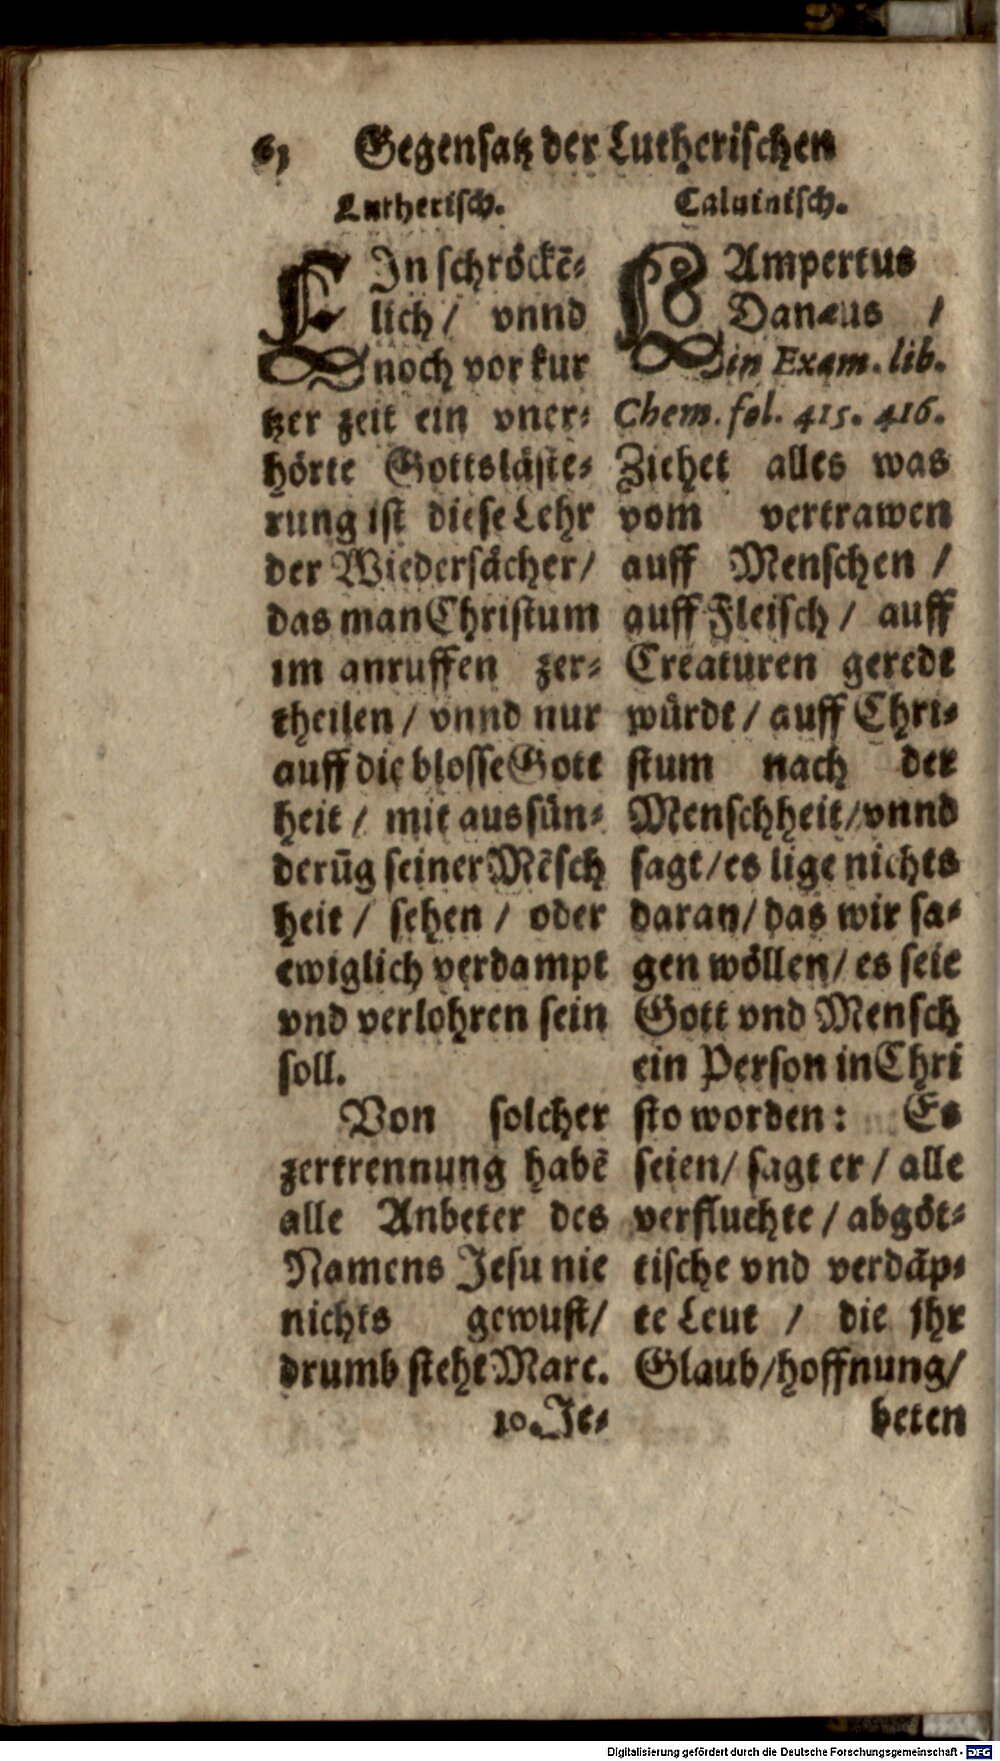 63 Gegensatz der Lutherischen
Lutherisch.
EIn schröckē-
lich / vnnd
noch vor kur
tzer zeit ein vner-
hörte Gottsläste-
rung ist diese Lehr
der Wiedersächer /
das man Christum
im anruffen zer-
theilen / vnnd nur
auff die blosse Gott
heit / mit aussün-
derūg seiner Mēsch
heit / sehen / oder
ewiglich verdampt
vnd verlohren sein
soll.
Von solcher
zertrennung habē
alle Anbeter des
Namens Jesu nie
nichts gewust /
drumb steht Marc.
10. Je-
Caluinisch.
LAmpertus
Danæus /
in Exam. lib.
Chem. fol. 415. 416.
Ziehet alles was
vom vertrawen
auff Menschen /
auff Fleisch / auff
Creaturen geredt
würdt / auff Chri-
stum nach der
Menschheit / vnnd
sagt / es lige nichts
daran / das wir sa-
gen wöllen / es seie
Gott vnd Mensch
ein Person in Chri
sto worden: Es
seien / sagt er / alle
verfluchte / abgöt-
tische vnd verdāp-
te Leut / die jhr
Glaub / hoffnung /
beten
Digitalisierung gefördert durch die Deutsche Forschungsgemeinschaft - DFG